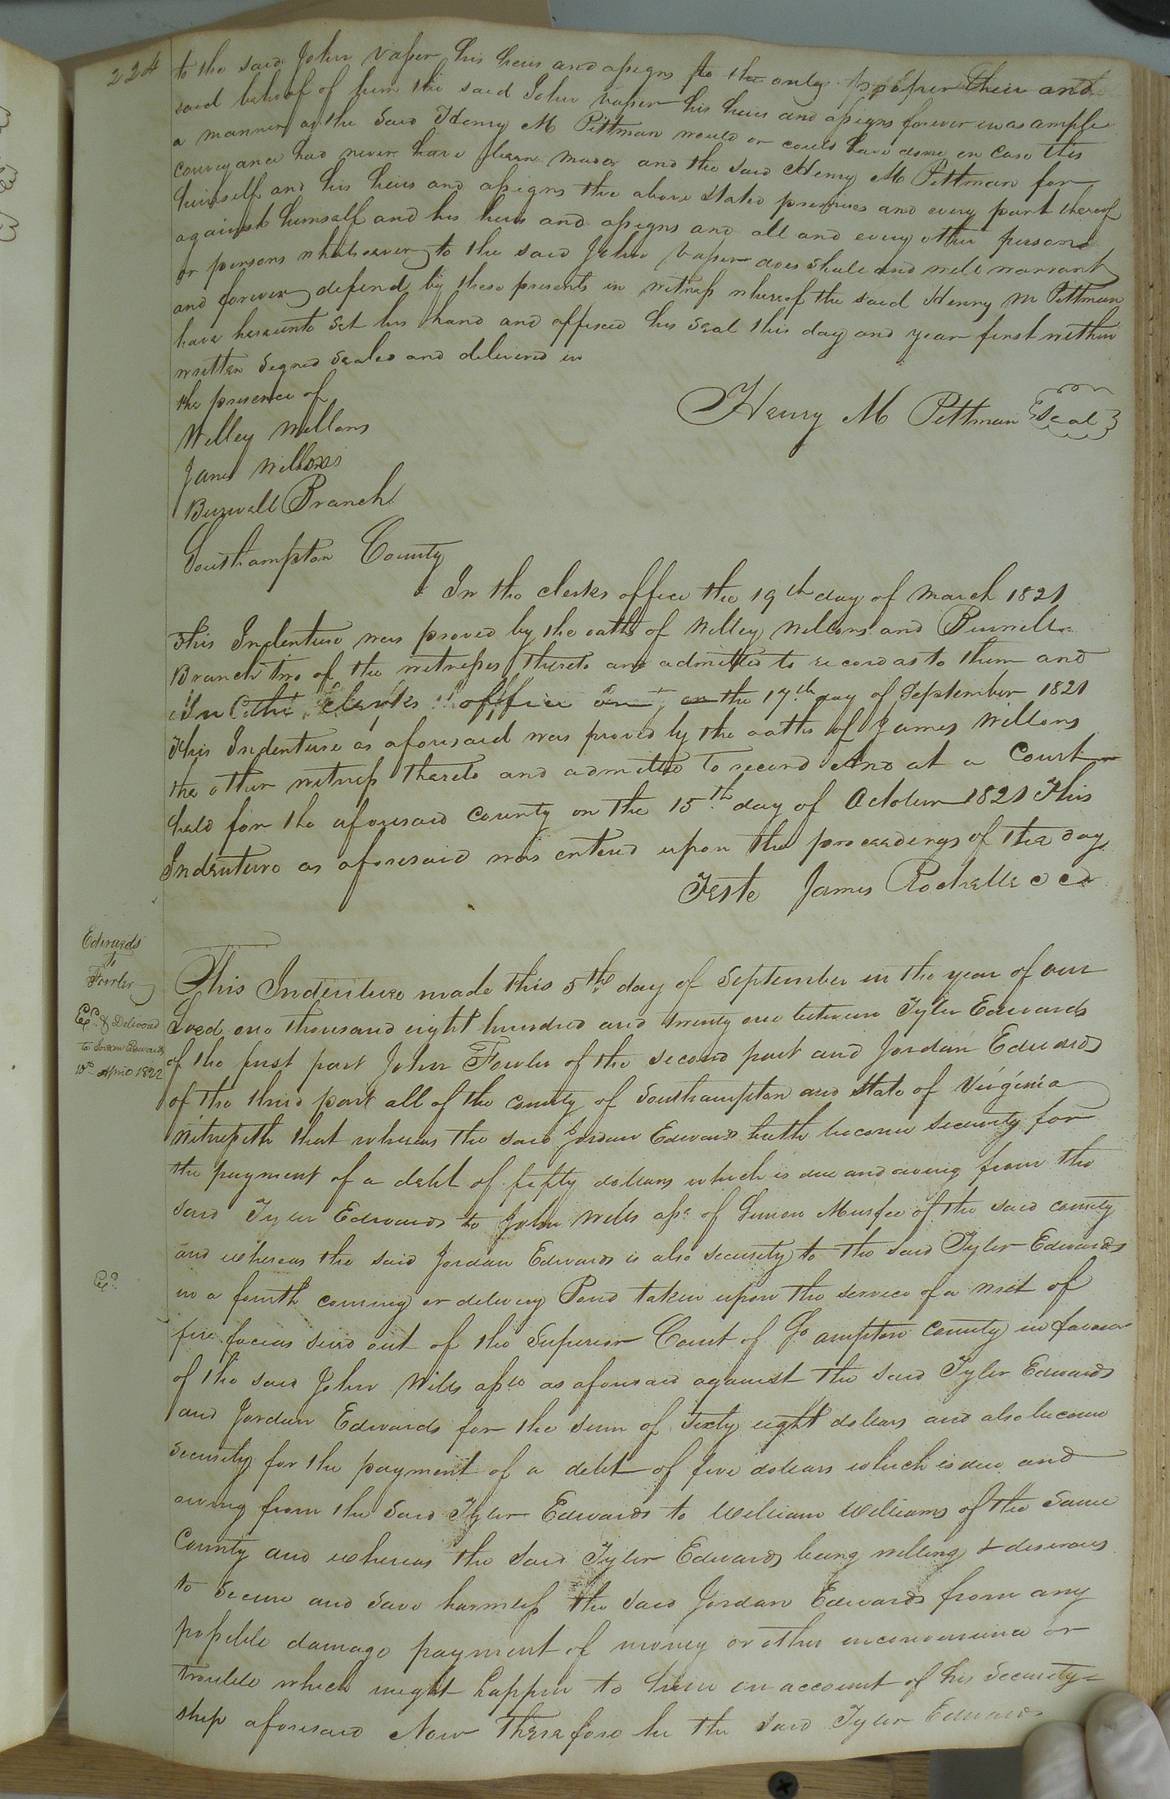 224
to the said John Vaser his heirs and assigns to the only proper their and
said behoof of him the said John Vaser his heirs and assigns forever in as ample
a manner as the said Henry M Pittman would or could have done in case this
conveyance had never have been made and the said Henry M Pittman for
himself and his heirs and assigns the above stated premises and every part thereof
against himself and his heirs and assigns and all and every other person
or persons whatsoever to the said John Vaser does shall and will warrant
and forever defend by these presents in witness whereof the said Henry M Pittman
have hereunto set his hand and affixed his seal this day and year first within
written Signed Sealed and delivered in
the presence of
Henry M Pittman Seal
Willey Wellons
James Wellons
Burwell Branch
Southampton County
In the clerks office the 19th day of March 1821
This Indenture was proved by the oaths of Willey Wellons and Burwell
Branch two of the witnesses thereto and admitted to record as to them and
In the clerks office on the 17th day of September 1821
This Indenture as aforesaid was proved by the oaths of James Wellons
the other witness thereto and admitted to record And at a Court
held for the aforesaid county on the 15th day of October 1821 This
Indenture as aforesaid was entered upon the proceedings of the day
Teste James Rochelle C C
Edwards
to
Fowler
Exd. & Delivered
to Jordan Edwards
10th April 1822
This Indenture made this 5th day of September in the year of our
Lord one thousand eight hundred and twenty one between Tyler Edwards
of the first part John Fowler of the second part and Jordan Edwards
of the third part all of the county of Southampton and State of Virginia
Witnesseth that whereas the said Jordan Edwards hath become security for
the payment of a debt of fifty dollars which is due and owing from the
said Tyler Edwards to John Wills asse. of Simon Murfee of the said county
and whereas the said Jordan Edwards is also security to the said Tyler Edwards
Exd.
in a fourth coming or delivery Bond taken upon the service of a writ of
fire facias sued out of the Superior Court of So ampton County in favour
of the said John Wills assee as aforesaid against the said Tyler Edwards
and Jordan Edwards for the sum of Sixty eight dollars and also become
security for the payment of a debt of five dollars which is due and
owing from the said Tyler Edwards to William Williams of the same
County and whereas the said Tyler Edwards being willing & desirous
to secure and save harmless the said Jordan Edwards from any
possible damage payment of money or other inconvenience or
trouble which might happen to him on account of his security=
ship aforesaid Now Therefore he the said Tyler Edwards